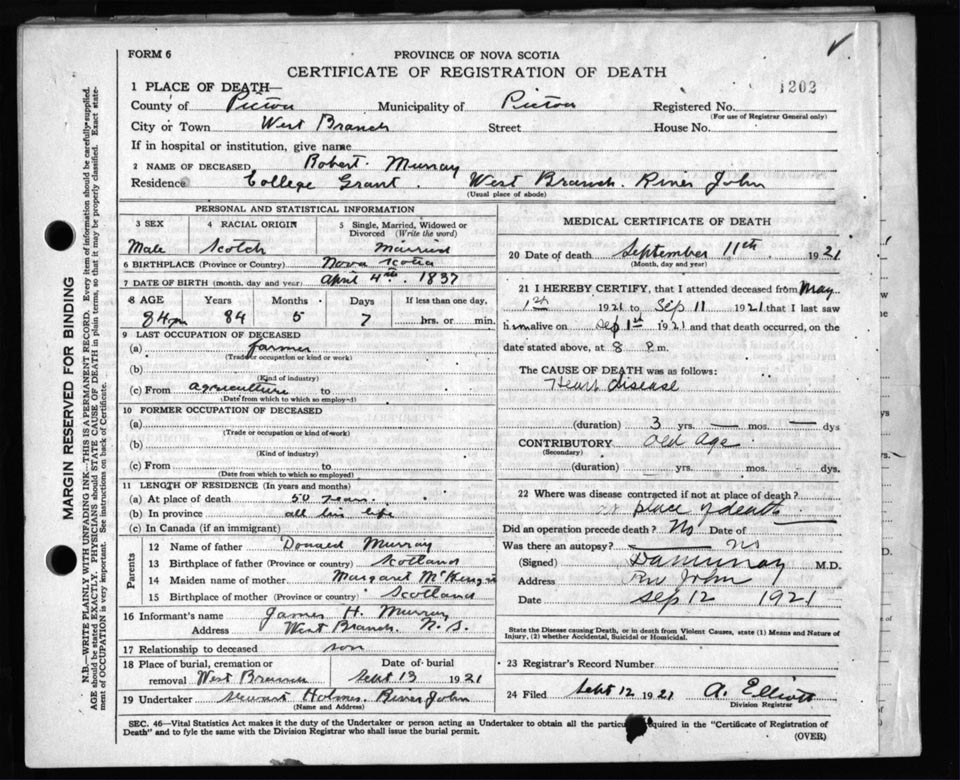 FORM 6
PROVINCE OF NOVA SCOTIA
CERTIFICATE OF REGISTRATION OF DEATH
1202
1 PLACE OF DEATH—
County of Pictou Municipality of Pictou Registered No.
(For use of Registrar General only)
City or Town West Branch Street House No.
If in hospital or institution, give name
2 NAME OF DECEASED Robert Murray
Residence College Grant. West Branch. River John
(Usual place of abode)
PERSONAL AND STATISTICAL INFORMATION
3 SEX 4 RACIAL ORIGIN 5 Single, Married, Widowed or Divorced (Write the word)
Male Scotch Married
6 BIRTHPLACE (Province or Country) Nova Scotia
7 DATE OF BIRTH (month, day and year) April 4th 1837
8 AGE Years Months Days If less than one day,
84 84 5 7 hrs. or min.
9 LAST OCCUPATION OF DECEASED
(a) farmer
(Trade or occupation or kind or work)
(b)
(Kind of industry)
(c) From agriculture to
(Date from which to which so employed)
10 FORMER OCCUPATION OF DECEASED
(a)
(Trade or occupation or kind of work)
(b)
(Kind of industry)
(c) From to
(Date from which to which so employed)
11 LENGTH OF RESIDENCE (In years and months)
(a) At place of death 50 years
(b) In province all his life
(c) In Canada (if an immigrant)
Parents
12 Name of father Donald Murray
13 Birthplace of father (Province or country) Scotland
14 Maiden name of mother Margaret McKenzie
15 Birthplace of mother (Province or country) Scotland
16 Informant's name James H. Murray
Address West Branch. N. S.
17 Relationship to deceased son
18 Place of burial, cremation or removal West Branch Date of burial Sept 13 1921
19 Undertaker Stewart Holmes. River John
(Name and Address)
MEDICAL CERTIFICATE OF DEATH
20 Date of death September 11th 1921
(Month, day and year)
21 I HEREBY CERTIFY, that I attended deceased from May
1st 1921 to Sep 11 1921 that I last saw
him alive on Sep 1st 1921 and that death occurred, on the
date stated above, at 8 P.m.
The CAUSE OF DEATH was as follows:
Heart disease
(duration) 3 yrs. — mos. — dys
CONTRIBUTORY Old Age
(Secondary)
(duration) yrs. mos. dys.
22 Where was disease contracted if not at place of death?
at place of death
Did an operation precede death? No Date of
Was there an autopsy? No
(Signed) DaMurray M.D.
Address Riv John
Date Sep 12 1921
State the Disease causing Death, or in death from Violent Causes, state (1) Means and Nature of
Injury, (2) whether Accidental, Suicidal or Homicidal.
23 Registrar's Record Number
24 Filed Sept 12 1921 A. Elliott
Division Registrar
SEC. 46—Vital Statistics Act makes it the duty of the Undertaker or person acting as Undertaker to obtain all the required in the "Certificate of Registration of
Death" and to fyle the same with the Division Registrar who shall issue the burial permit.
(OVER)
MARGIN RESERVED FOR BINDING
N.B.—WRITE PLAINLY WITH UNFADING INK—THIS IS A PERMANENT RECORD. Every item of information should be carefully supplied.
AGE should be stated EXACTLY. PHYSICIANS should STATE CAUSE OF DEATH in plain terms, so that it may be properly classified. Exact state-
ment of OCCUPATION is very important. See instructions on back of Certificate.